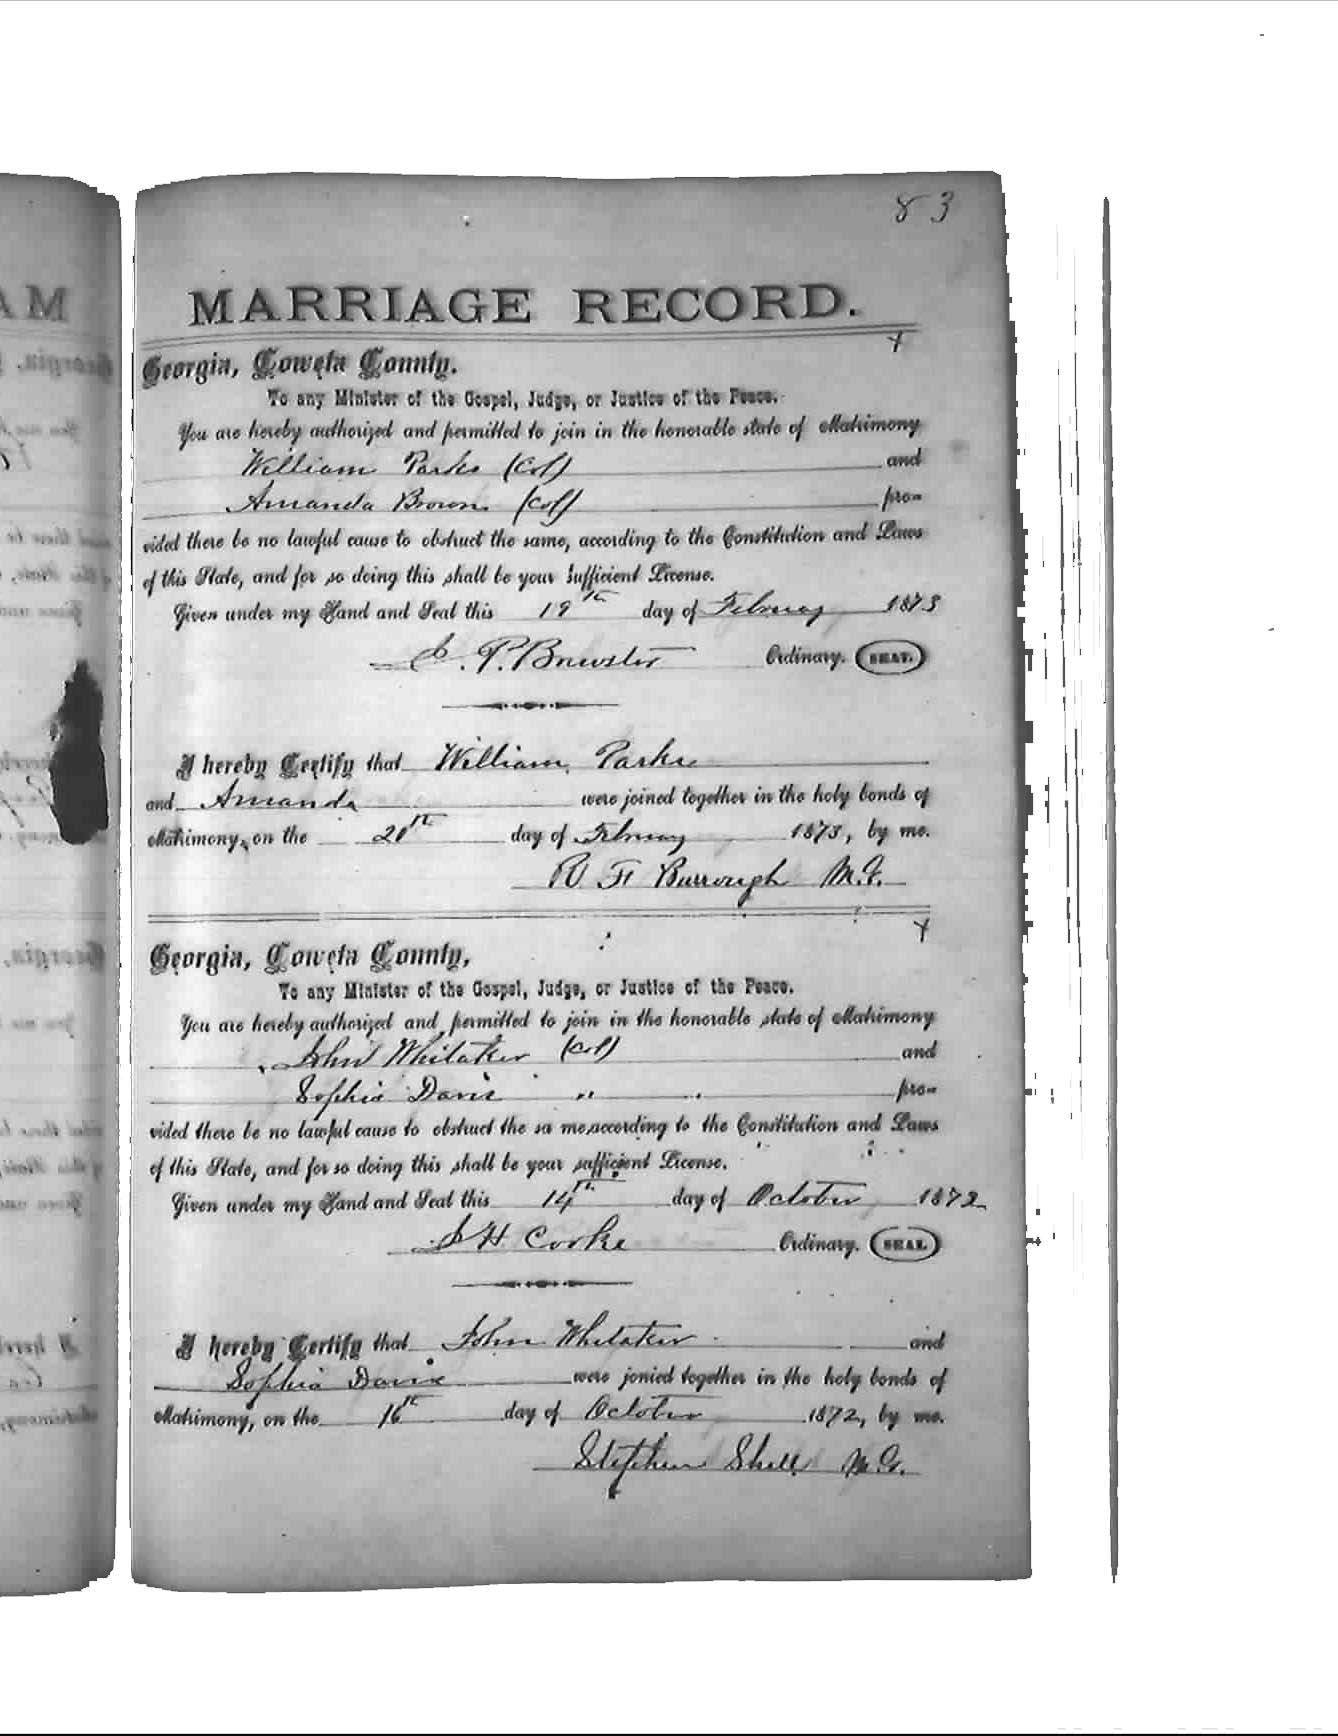 83
MARRIAGE RECORD.
Georgia, Coweta County.
To any Minister of the Gospel, Judge, or Justice of the Peace.
You are hereby authorized and permitted to join in the honorable state of Matrimony
William Parks (Col) and
Amanda Brown (Col) pro-
vided there be no lawful cause to obstruct the same, according to the Constitution and Laws
of this State, and for so doing this shall be your sufficient License.
Given under my Hand and Seal this 19th day of February 1873
J. P. Brewster Ordinary. SEAL.
I hereby Certify that William Parks
and Amanda were joined together in the holy bonds of
Matrimony, on the 20th day of February 1873, by me.
W F Burrough M.G.
Georgia, Coweta County,
To any Minister of the Gospel, Judge, or Justice of the Peace.
You are hereby authorized and permitted to join in the honorable state of Matrimony
John Whitaker (Col) and
Sophia Davis " " pro-
vided there be no lawful cause to obstruct the sa me,according to the Constitution and Laws
of this State, and for so doing this shall be your sufficient License.
Given under my Hand and Seal this 14th day of October 1872
J H Cooke Ordinary. SEAL.
I hereby Certify that John Whitaker and
Sophia Davis were jonied together in the holy bonds of
Matrimony, on the 16th day of October 1872, by me.
Stephen Shell M.G.